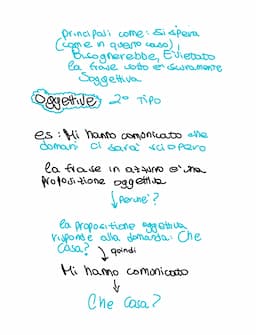 principali come: si spera
(come in questo caso),
Bisognerebbe, E' vietato
la frase sotto è sicuramente
Soggettiva
Oggettive 2° Tipo
es: Mi hanno comunicato che
domani ci sarà sciopero
la frase in azzurro è una
proposizione oggettiva
perché?
la proposizione oggettiva
risponde alla domanda: Che
Cosa? quindi
Mi hanno comunicato
Che Cosa?